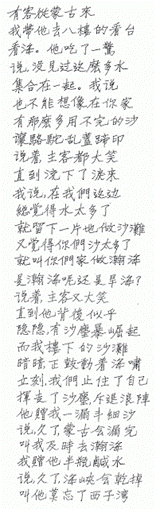 有客從蒙古來
我帶他去八樓的看台
看海。他吃了一驚
說,沒見过这麼多水
集合在一起。我说
也不能想像在你家
有那麼多用不完的沙
讓駱駝亂蓋蹄印
說著主客都大笑
直到浣下了淚來
我說,在我們这边
總覺得水太多了
就留下一片也做沙灘
又覺得你們沙太多了
就叫你們家做瀚海
是瀚海呢还是旱海?
说着主客又大笑
直到他背後似乎
隐隐有沙塵暴崛起
而我樓下的沙灘
暗暗正鼓動着海嘯
立刻,我們止住了自己
揮走了沙塵,斥退浪陣
他贈我一漏斗細沙
说,久了,蒙古会漏完
叫我及時去瀚海
我贈他半瓶鹹水
说,久了,海峽会乾掉
叫他莫忘了西子湾